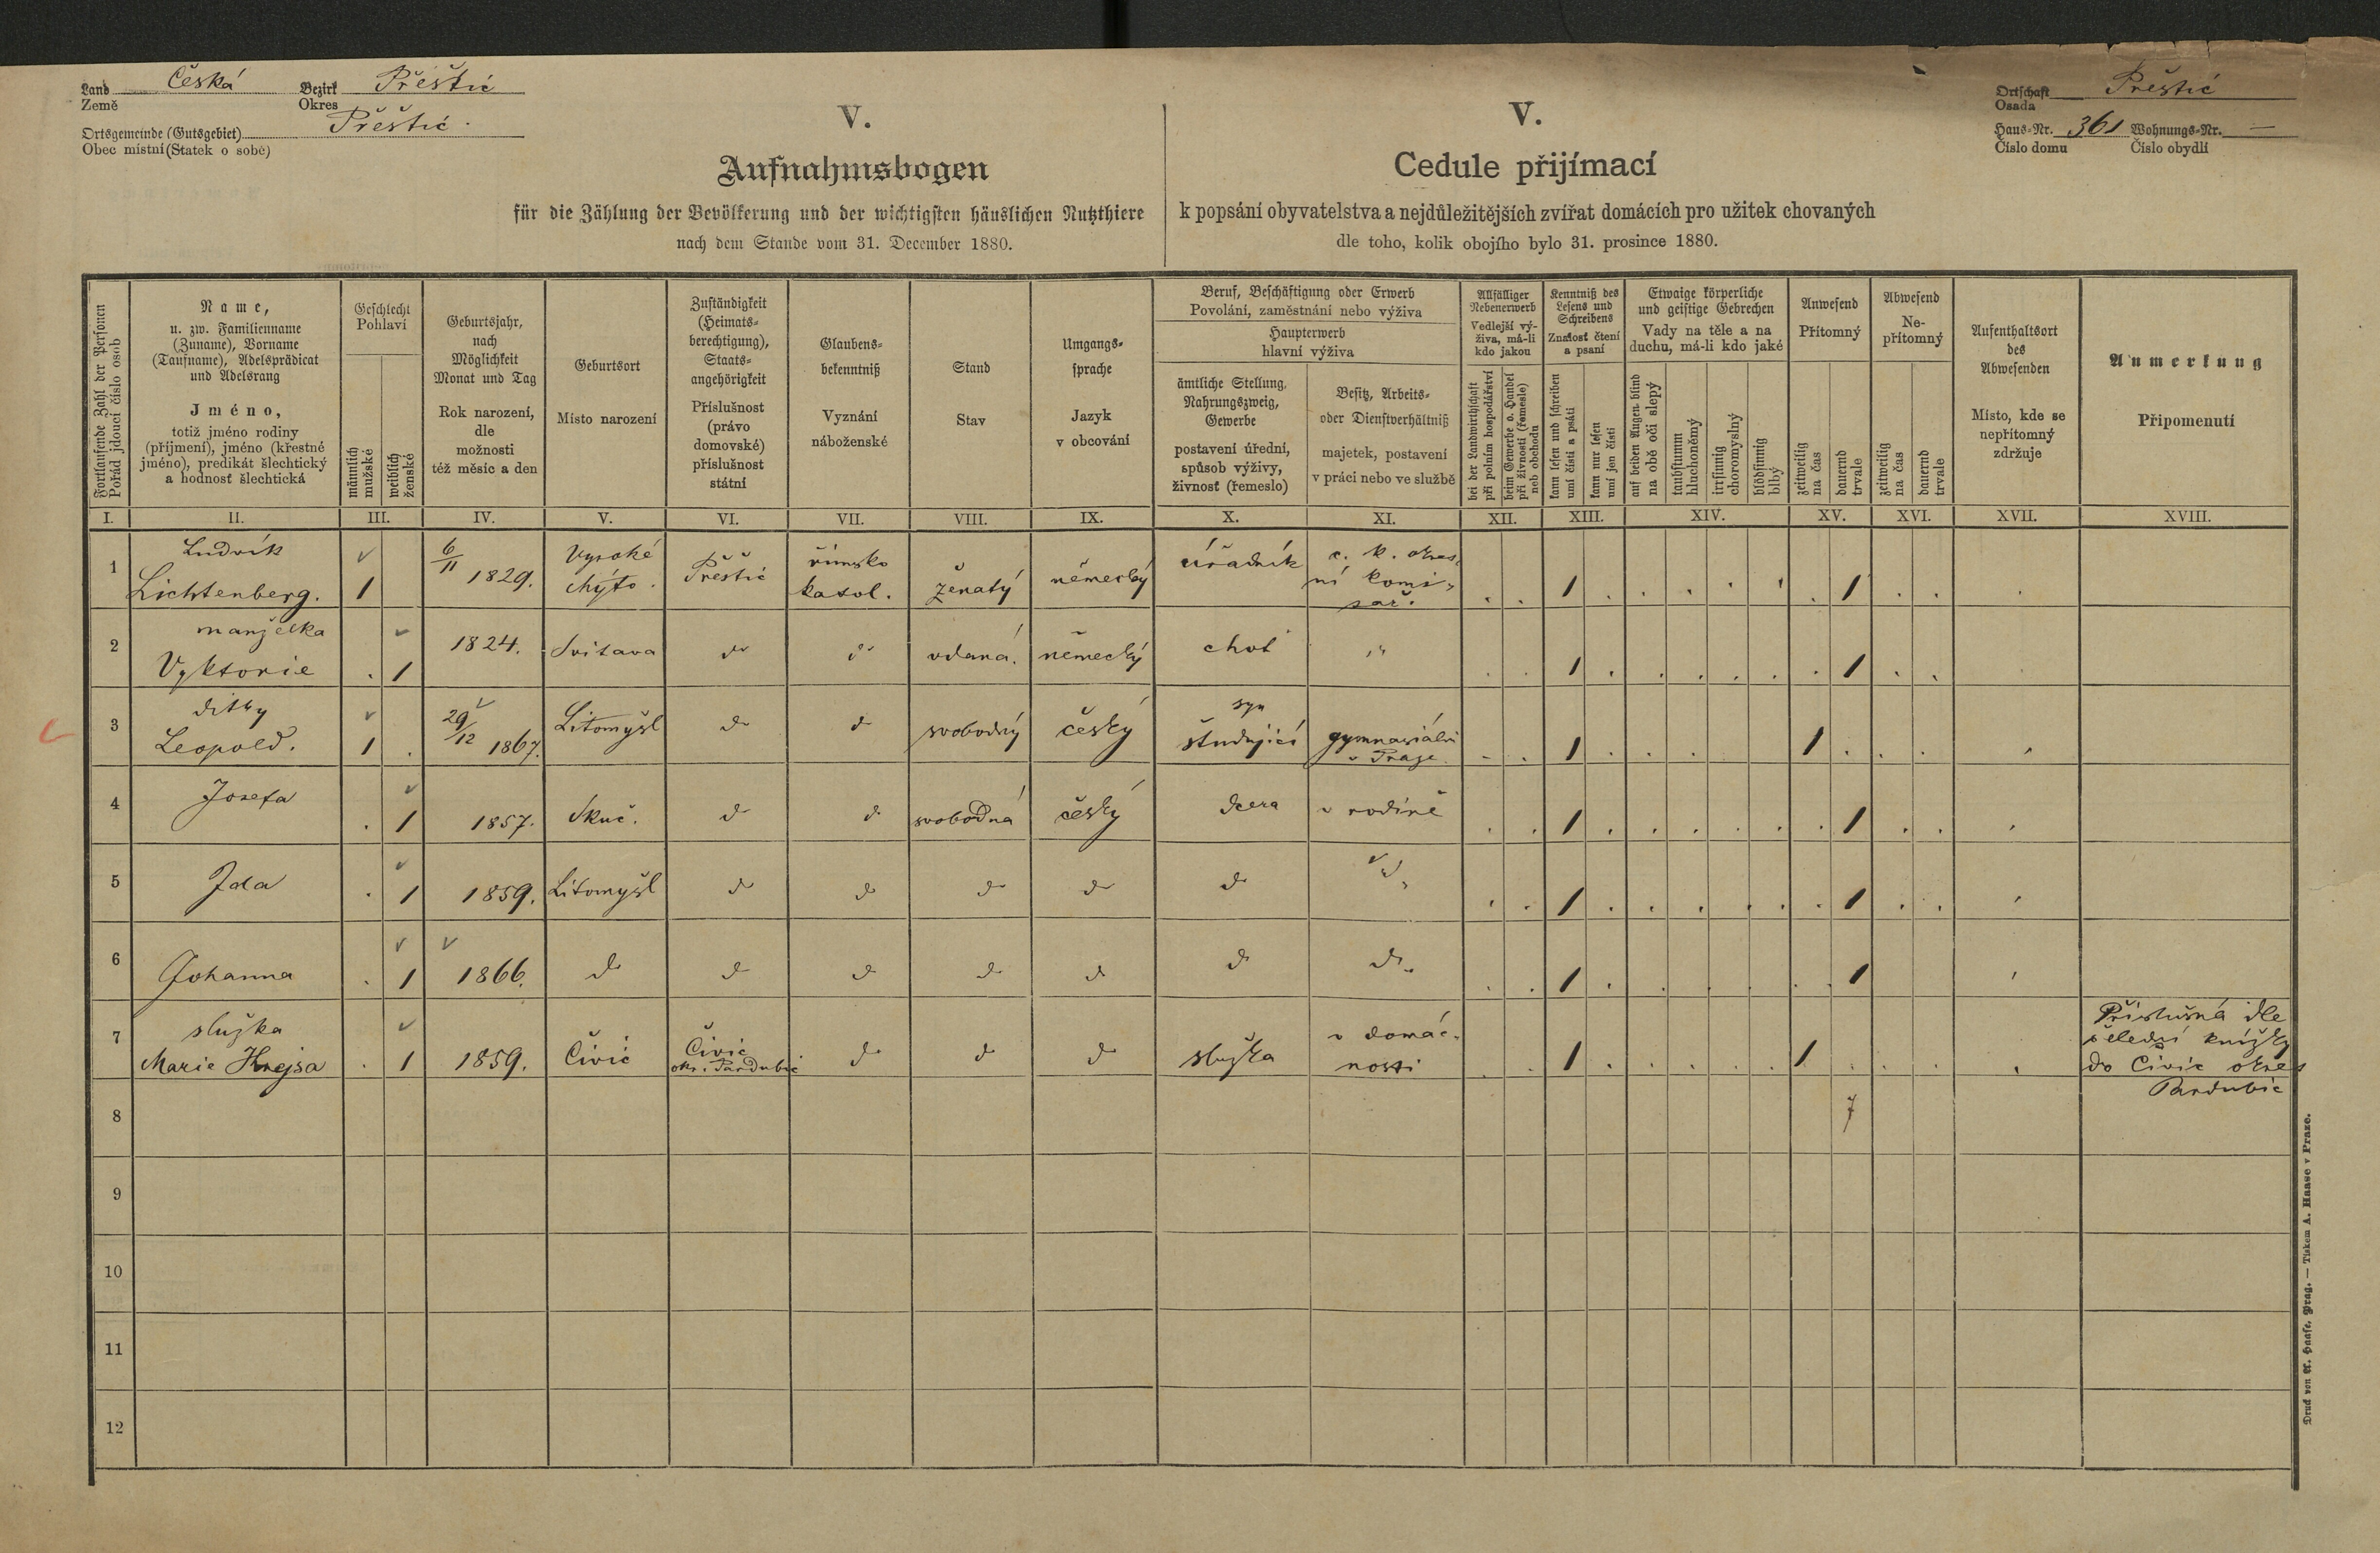 Land Česká Bezirk Přeštic
Země Okres
Ortsgemeinde (Gutsgebiet) Přeštic.
Obec místní (Statek o sobě)
Ortschaft Přeštic
Osada
Haus-Nr. 361 Wohnungs-Nr. —
Číslo domu Číslo obydlí
V.
Aufnahmsbogen
für die Zählung der Bevölkerung und der wichtigsten häuslichen Nutzthiere
nach dem Stande vom 31. December 1880.
V.
Cedule přijímací
k popsání obyvatelstva a nejdůležitějších zvířat domácích pro užitek chovaných
dle toho, kolik obojího bylo 31. prosince 1880.
Fortlaufende Zahl der Personen
Pořád jdoucí číslo osob
Name,
u. zw. Familienname
(Zuname), Vorname
(Taufname), Adelsprädicat
und Adelsrang
Jméno,
totiž jméno rodiny
(příjmení), jméno (křestné
jméno), predikát šlechtický
a hodnosť šlechtická
Geschlecht
Pohlaví
männlich
mužské
weiblich
ženské
Geburtsjahr,
nach
Möglichkeit
Monat und Tag
Rok narození,
dle
možnosti
též měsíc a den
Geburtsort
Místo narození
Zuständigkeit
(Heimats-
berechtigung),
Staats-
angehörigkeit
Příslušnost
(právo
domovské)
příslušnost
státní
Glaubens-
bekenntniß
Vyznání
náboženské
Stand
Stav
Umgangs-
sprache
Jazyk
v obcování
Beruf, Beschäftigung oder Erwerb
Povolání, zaměstnání nebo výživa
Haupterwerb
hlavní výživa
ämtliche Stellung,
Nahrungszweig,
Gewerbe
postavení úřední,
spůsob výživy,
živnosť (řemeslo)
Besitz, Arbeits-
oder Dienstverhältniß
majetek, postavení
v práci nebo ve službě
Allfälliger
Nebenerwerb
Vedlejší vý-
živa, má-li
kdo jakou
bei der Landwirthschaft
při polním hospodářství
beim Gewerbe o. Handel
při živnosti (řemesle)
neb obchodu
Kenntniß des
Lesens und
Schreibens
Znalosť čtení
a psaní
kann lesen und schreiben
umí čísti a psáti
kann nur lesen
umí jen čísti
Etwaige körperliche
und geistige Gebrechen
Vady na těle a na
duchu, má-li kdo jaké
auf beiden Augen blind
na obě oči slepý
taubstumm
hluchoněmý
irrsinnig
choromyslný
blödsinnig
blbý
Anwesend
Přítomný
zeitweilig
na čas
dauernd
trvale
Abwesend
Ne-
přítomný
zeitweilig
na čas
dauernd
trvale
Aufenthaltsort
des
Abwesenden
Místo, kde se
nepřítomný
zdržuje
Anmerkung
Připomenutí
I. II. III. IV. V. VI. VII. VIII. IX. X. XI. XII. XIII. XIV. XV. XVI. XVII. XVIII.
1 Ludvík
Lichtenberg. 1 6/11 1829. Vysoké
Mýto. Přeštic římsko
katol. ženatý německý úřadník c. k. okres,
ní komi,
sař. 1 1
2 manželka
Vyktorie 1 1824. Svitava do do vdaná. německý choť " 1 1
3 dítky
Leopold. 1 29/12 1867. Litomyšl do do svobodný český syn
študující gymnasiální
v Praze. 1 1
4 Josefa 1 1857. Skuč. do do svobodná český dcera v rodině 1 1
5 Ida 1 1859. Litomyšl do do do do do do 1 1
6 Johanna 1 1866. do do do do do do do 1 1
7 služka
Marie Krejsa 1 1859. Čivic Čivic
okr. Pardubic do do do služka v domác-
nosti 1 1 Příslušná dle
čelední knížky
do Čivic okres
Pardubic
8 7
9
10
11
12
Druck von A. Haase, Prag. — Tiskem A. Haase v Praze.